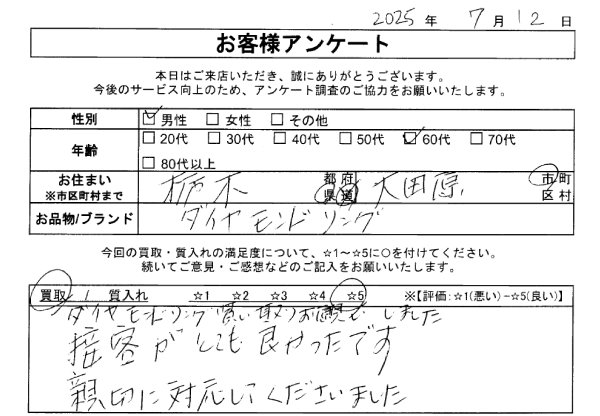 2025年 7月12日
お客様アンケート
本日はご来店いただき、誠にありがとうございます。
今後のサービス向上のため、アンケート調査のご協力をお願いいたします。
性別 ☑男性 □女性 □その他
年齢 □20代 □30代 □40代 □50代 ☑60代 □70代
□80代以上
お住まい ※市区町村まで 栃木 都府県道 大田原 市町区村
お品物/ブランド ダイヤモンドリング
今回の買取・質入れの満足度について、☆1～☆5に○を付けてください。
続いてご意見・ご感想などのご記入をお願いいたします。
買取 / 質入れ ☆1 ☆2 ☆3 ☆4 ☆5 ※【評価:☆1(悪い)-☆5(良い)】
ダイヤモンドリング買い取りお願いしました
接客がとても良かったです
親切に対応してくださいました